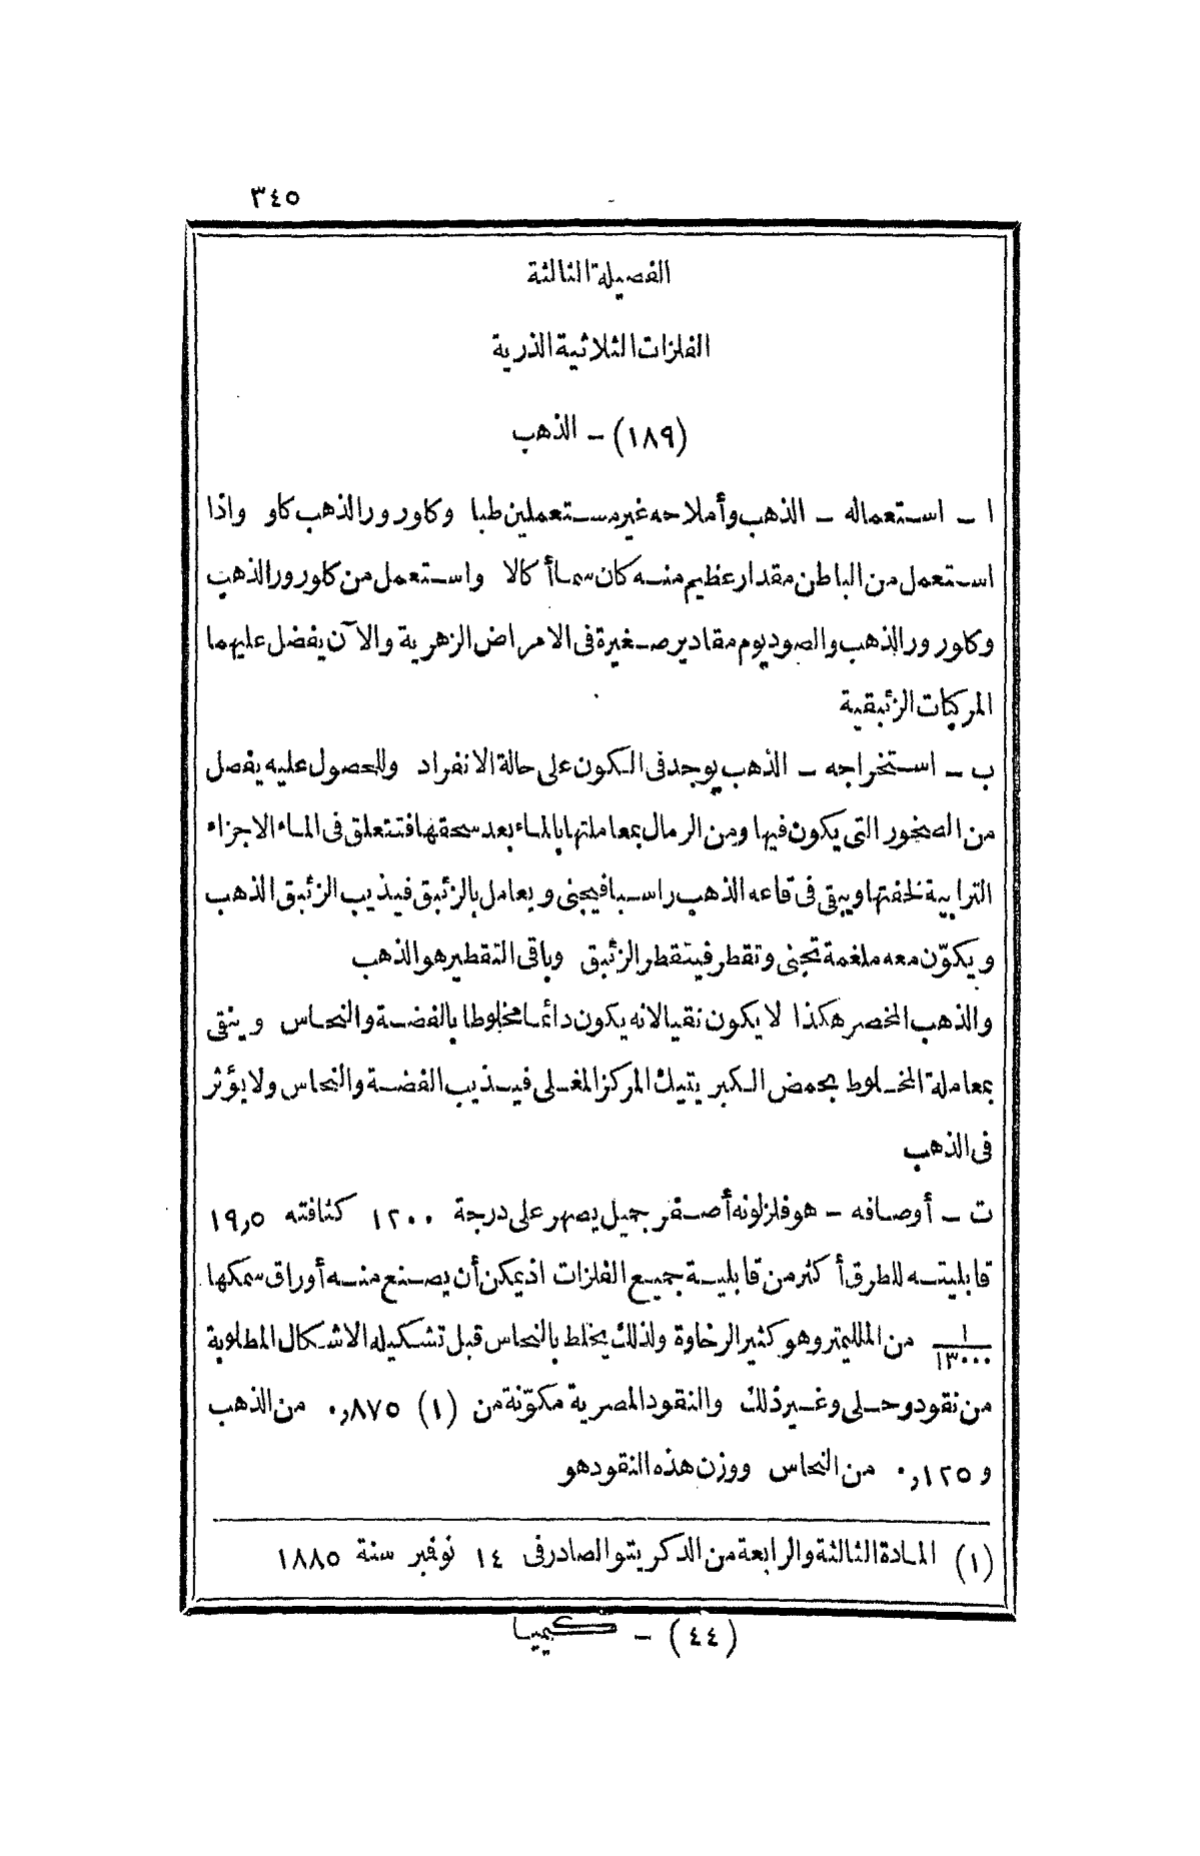 ٣٤٥
الفصيلة الثالثة
الفلزات الثلاثية الذرية
(١٨٩) – الذهب
ا – استعماله – الذهب وأملاحه غير مستعملين طبا وكلورور الذهب كاو واذا
استعمل من الباطن مقدار عظيم منه كان سماأ كالا واستعمل من كلورور الذهب
وكلورور الذهب والصوديوم مقادير صغيرة فى الامراض الزهرية والآن يفضل عليهما
المركبات الزئبقية
ب – استخراجه – الذهب يوجد فى الكون على حالة الانفراد وللحصول عليه يفصل
من الصخور التى يكون فيها ومن الرمال بمعاملتها بالماء بعد سحقها فتتعلق فى الماء الاجزاء
الترابية لخفتها ويبقى فى قاعه الذهب راسبا فيجنى ويعامل بالزئبق فيذيب الزئبق الذهب
ويكوّن معه ملغمة تجنى وتقطر فيتقطر الزئبق وباقى التقطير هو الذهب
والذهب المحصر هكذا لا يكون نقيا لانه يكون دائما مخلوطا بالفضة والنحاس وينقى
بمعاملة المخلوط بحمض الكبريتيك المركز المغلى فيذيب الفضة والنحاس ولا يؤثر
فى الذهب
ت – أوصافه – هو فلز لونه أصفر جميل يصهر على درجة ١٢٠٠ كثافته ١٩,٥
قابليته للطرق أكثر من قابلية جميع الفلزات اذ يمكن أن يصنع منه أوراق سمكها
١/١٣٠٠٠ من الملليمتر وهو كثير الرخاوة ولذلك يخلط بالنحاس قبل تشكيله الاشكال المطلوبة
من نقود وحلى وغير ذلك والنقود المصرية مكوّنة من (١) ٠,٨٧٥ من الذهب
و ٠,١٢٥ من النحاس ووزن هذه النقود هو
(١) المادة الثالثة والرابعة من الدكريتو الصادر فى ١٤ نوفمبر سنة ١٨٨٥
(٤٤) – كيميا